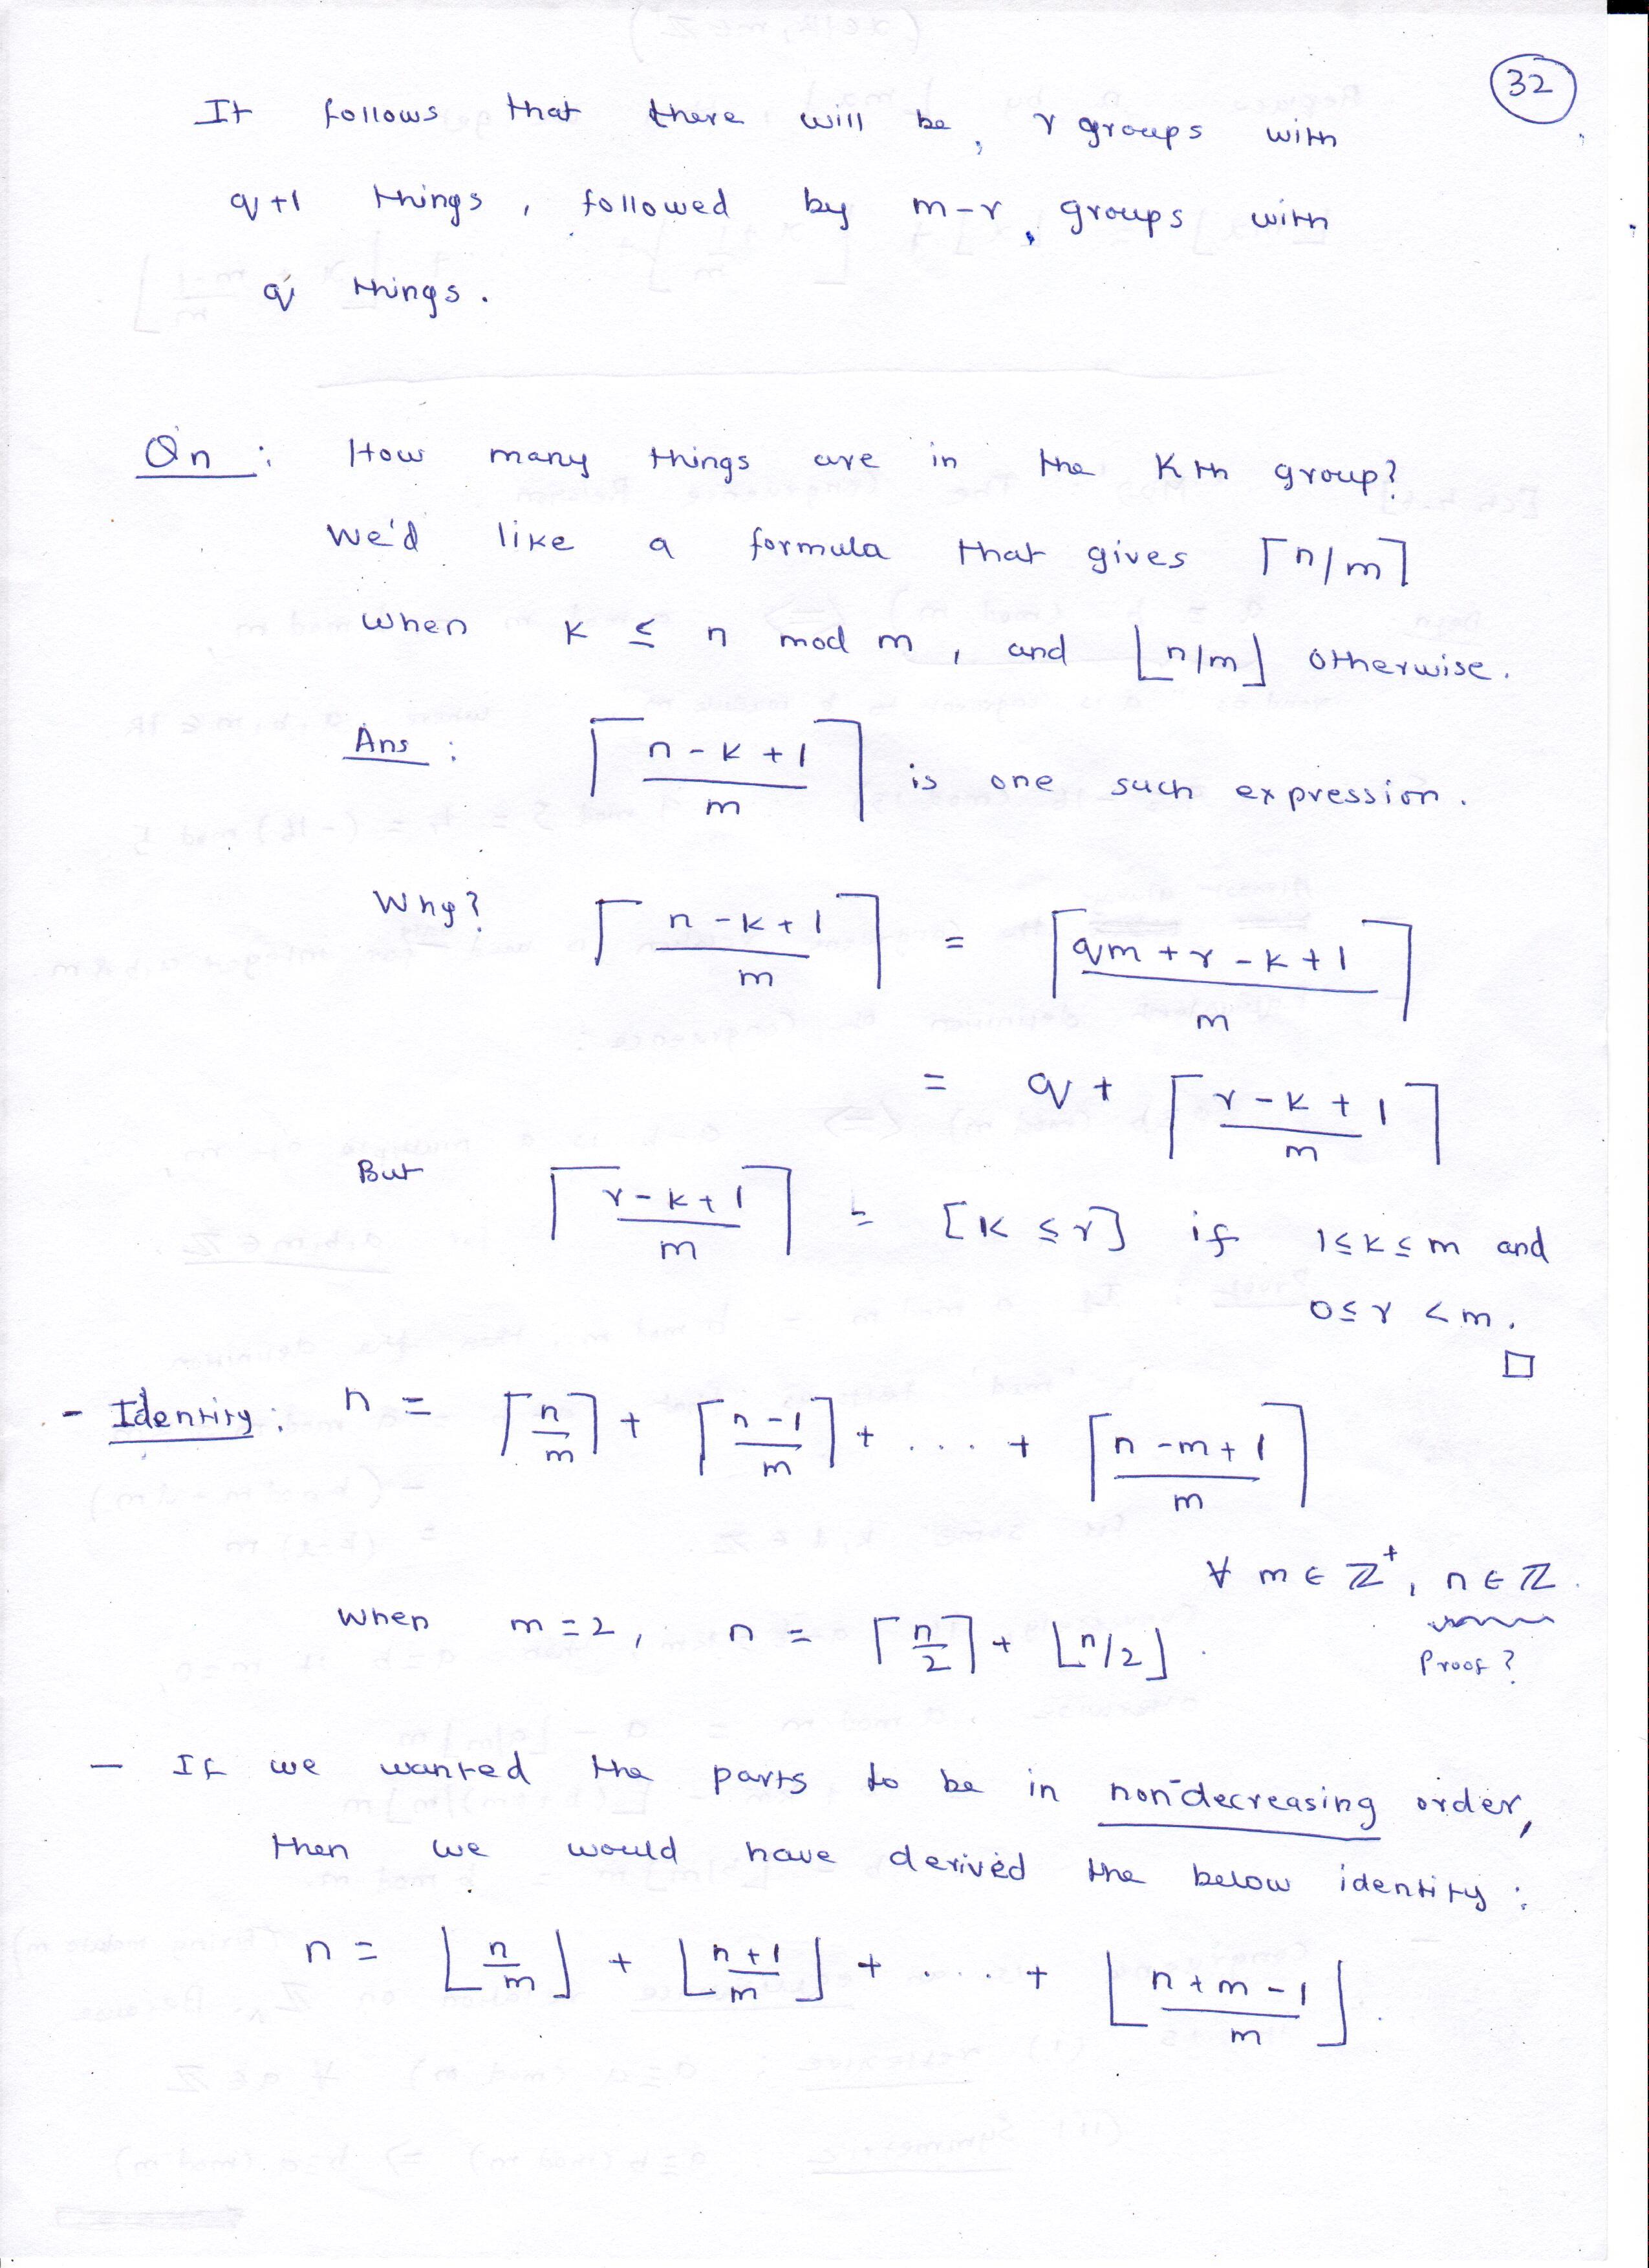 32
It follows that there will be, r groups with
q+1 things, followed by m-r, groups with
q things.
Qn: How many things are in the Kth group?
We'd like a formula that gives ⌈n/m⌉
when K ≤ n mod m, and ⌊n/m⌋ otherwise.
Ans: ⌈(n-k+1)/m⌉ is one such expression.
Why? ⌈(n-k+1)/m⌉ = ⌈(qm+r-k+1)/m⌉
= q + ⌈(r-k+1)/m⌉
But ⌈(r-k+1)/m⌉ = [K ≤ r] if 1≤k≤m and
0≤r<m.
□
- Identity: n = ⌈n/m⌉ + ⌈(n-1)/m⌉ + .... + ⌈(n-m+1)/m⌉
∀ m ∈ ℤ⁺, n ∈ ℤ.
when m=2, n = ⌈n/2⌉ + ⌊n/2⌋.
Proof?
- If we wanted the parts to be in non-decreasing order,
then we would have derived the below identity:
n = ⌊n/m⌋ + ⌊(n+1)/m⌋ + .... + ⌊(n+m-1)/m⌋.